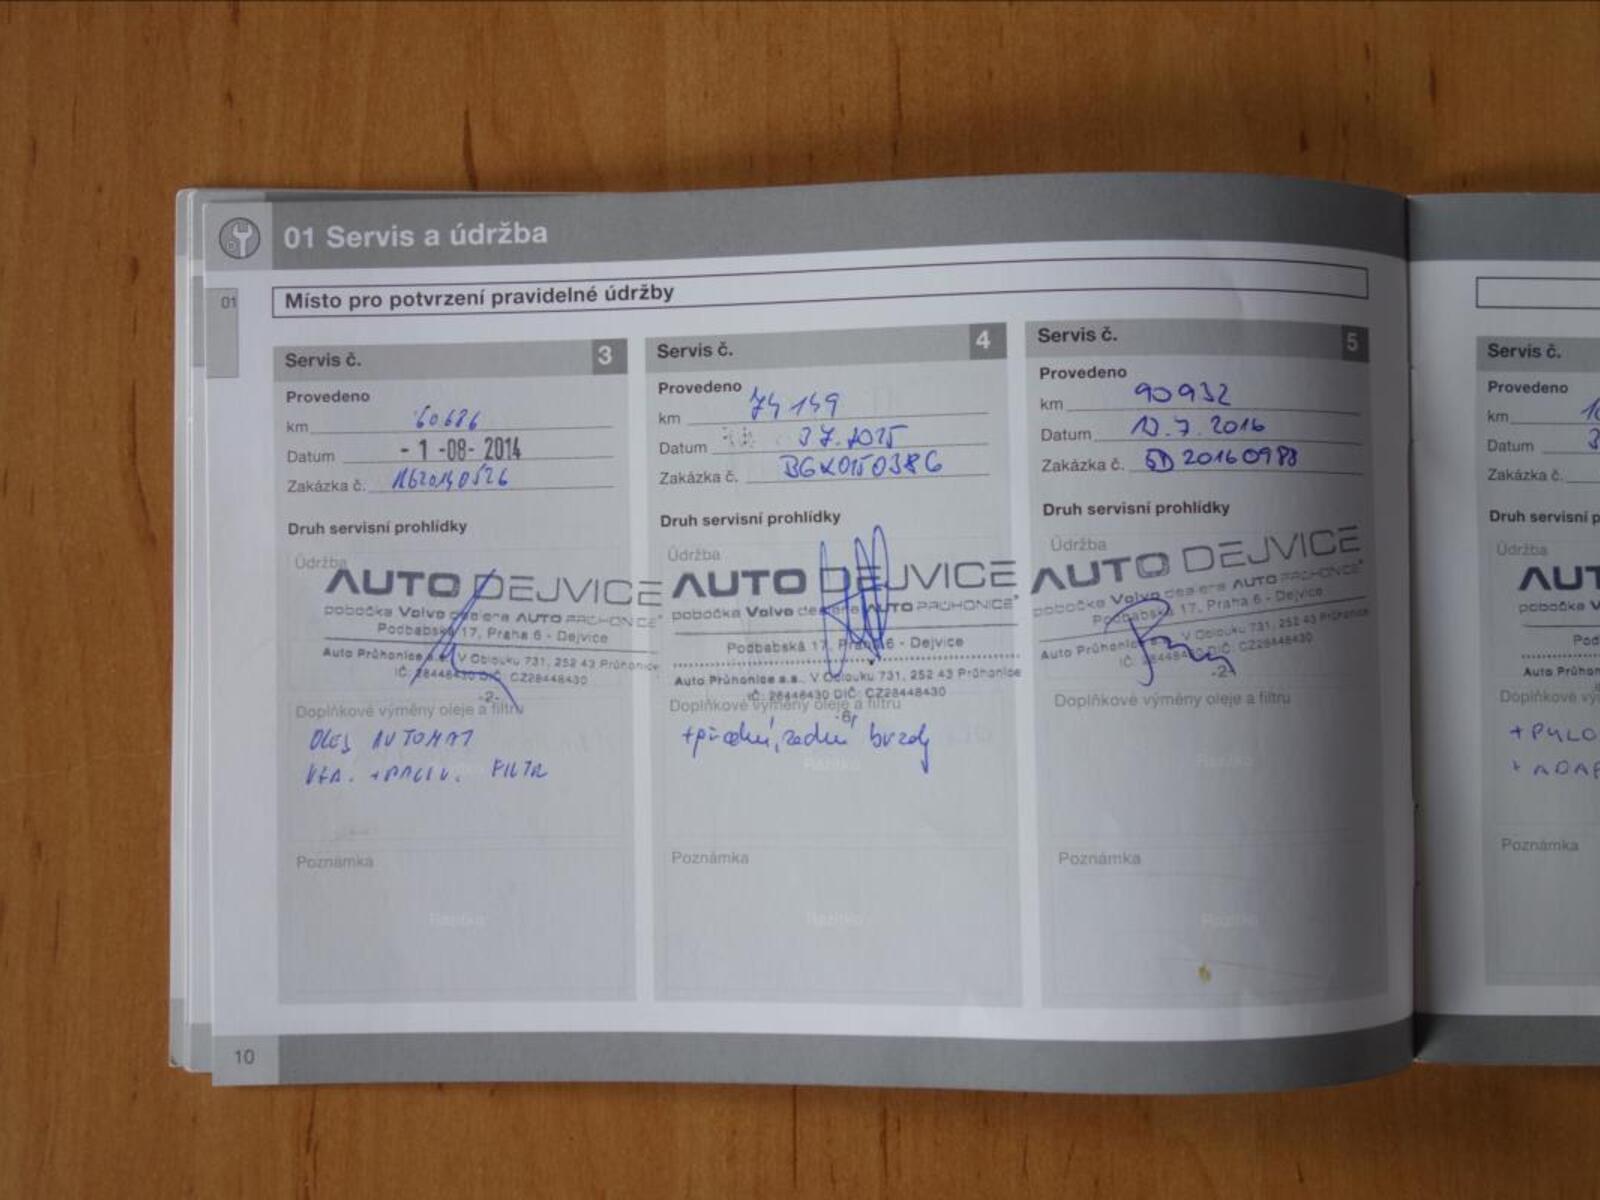 01 Servis a údržba
01
Místo pro potvrzení pravidelné údržby
Servis č. 3
Provedeno
km 60686
Datum - 1 -08- 2014
Zakázka č.
Druh servisní prohlídky
Údržba
AUTO DEJVICE
pobočka Volvo dealera AUTO PRŮHONICE
Podbabská 17, Praha 6 - Dejvice
Auto Průhonice a.s., V Oblouku 731, 252 43 Průhonice
IČ: 28448430 DIČ: CZ28448430
-2-
Doplňkové výměny oleje a filtru
OLEJ AUTOMAT
FILTR
Poznámka
Razítko
Servis č. 4
Provedeno
km 74149
Datum 3 7. 2015
Zakázka č. BGX0150386
Druh servisní prohlídky
Údržba
AUTO DEJVICE
pobočka Volvo dealera AUTO PRŮHONICE
Podbabská 17, Praha 6 - Dejvice
Auto Průhonice a.s., V Oblouku 731, 252 43 Průhonice
IČ: 28448430 DIČ: CZ28448430
Doplňkové výměny oleje a filtru
-6-
+přední, zadní brzdy
Razítko
Poznámka
Razítko
Servis č. 5
Provedeno
km 90932
Datum 7. 2016
Zakázka č. 20160988
Druh servisní prohlídky
Údržba
AUTO DEJVICE
pobočka Volvo dealera AUTO PRŮHONICE
Podbabská 17, Praha 6 - Dejvice
Auto Průhonice V Oblouku 731, 252 43 Průhonice
IČ: 28448430 DIČ: CZ28448430
-2-
Doplňkové výměny oleje a filtru
Razítko
Poznámka
Razítko
Servis č.
Provedeno
km
Datum
Zakázka č.
Druh servisní
Údržba
Poznámka
10